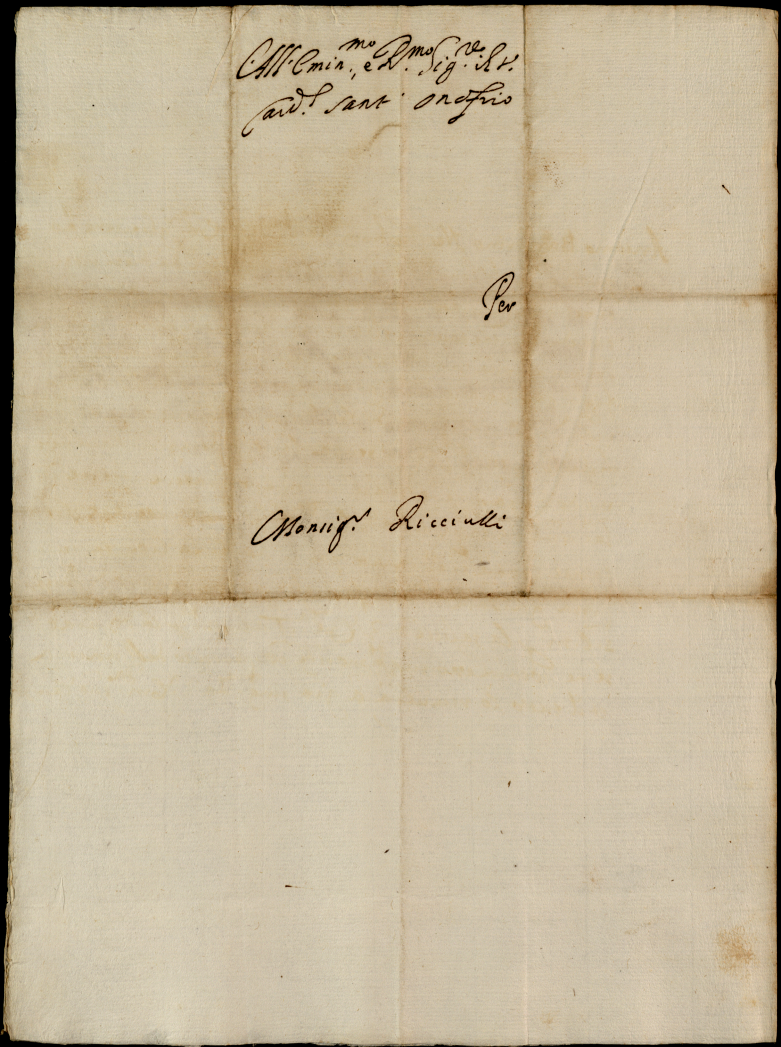 All'Emin.mo, e R.mo Sig.re il S.r
Card.l Sant' Onofrio
Per
Monsig.r Ricciulli